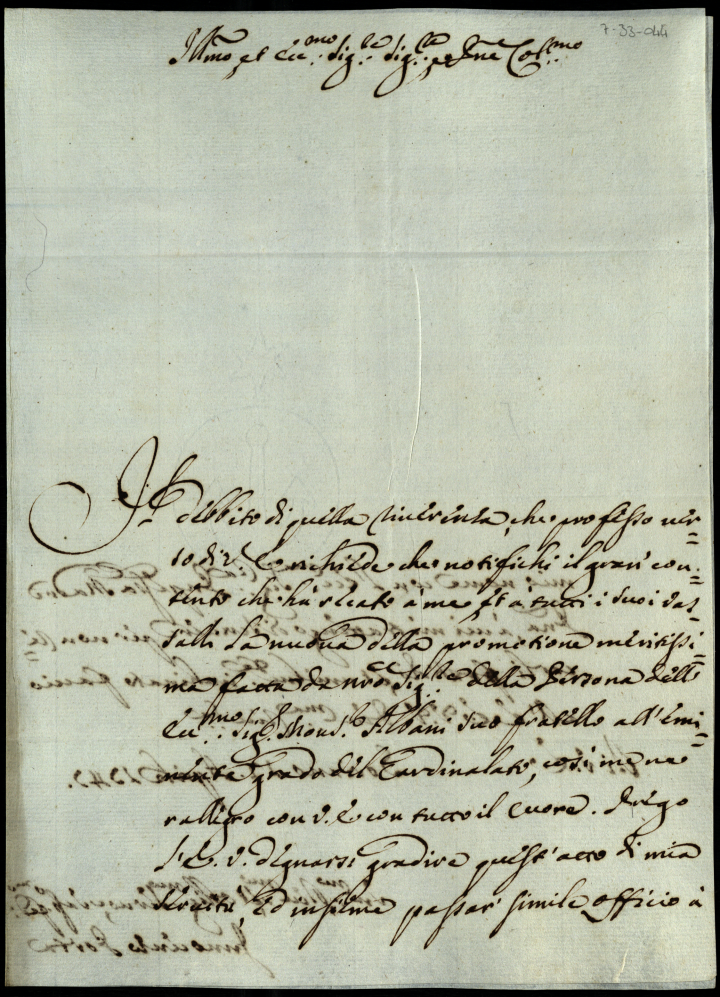 7-33-044
Ill.mo et Ecc.mo Sig.re Sig.re e Pne Col.mo
Il debbito di quella riverenza, che professo ver=
so di V. E. richiede che notifichi il gran con=
tento che hà recato à me et à tutti i suoi vas=
salli la nuova della promotione meritissi=
ma fatta da nro Sig.re della Persona dell'
Ecc.mo Sig.r Mons.r Albani suo fratello all'emi=
nente grado del Cardinalato, così me ne
rallegro con V. E. con tutto il cuore. Prego
l'E. V. degnarsi gradire quest'atto di mia
servitù, ed insieme passar simile officio à